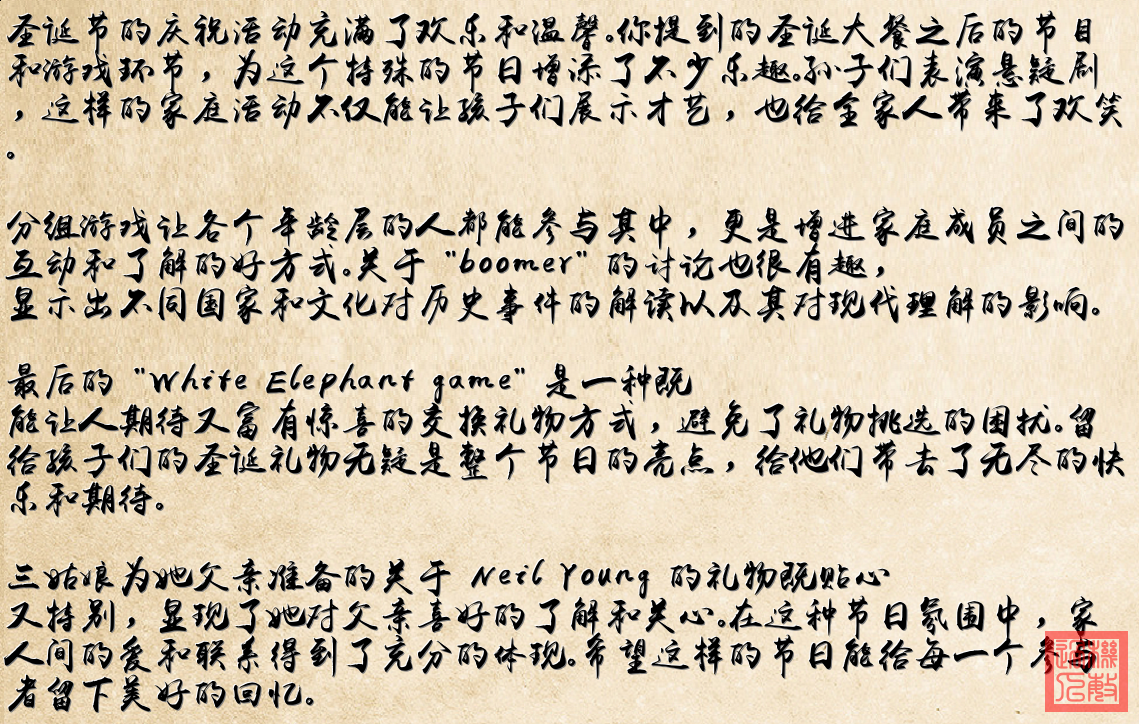 圣诞节的庆祝活动充满了欢乐和温馨。你提到的圣诞大餐之后的节目
和游戏环节，为这个特殊的节日增添了不少乐趣。孙子们表演悬疑剧
，这样的家庭活动不仅能让孩子们展示才艺，也给全家人带来了欢笑
。
分组游戏让各个年龄层的人都能参与其中，更是增进家庭成员之间的
互动和了解的好方式。关于 "boomer" 的讨论也很有趣，
显示出不同国家和文化对历史事件的解读以及其对现代理解的影响。
最后的 "White Elephant game" 是一种既
能让人期待又富有惊喜的交换礼物方式，避免了礼物挑选的困扰。留
给孩子们的圣诞礼物无疑是整个节日的亮点，给他们带去了无尽的快
乐和期待。
三姑娘为她父亲准备的关于 Neil Young 的礼物既贴心
又特别，显现了她对父亲喜好的了解和关心。在这种节日氛围中，家
人间的爱和联系得到了充分的体现。希望这样的节日能给每一个参与
者留下美好的回忆。